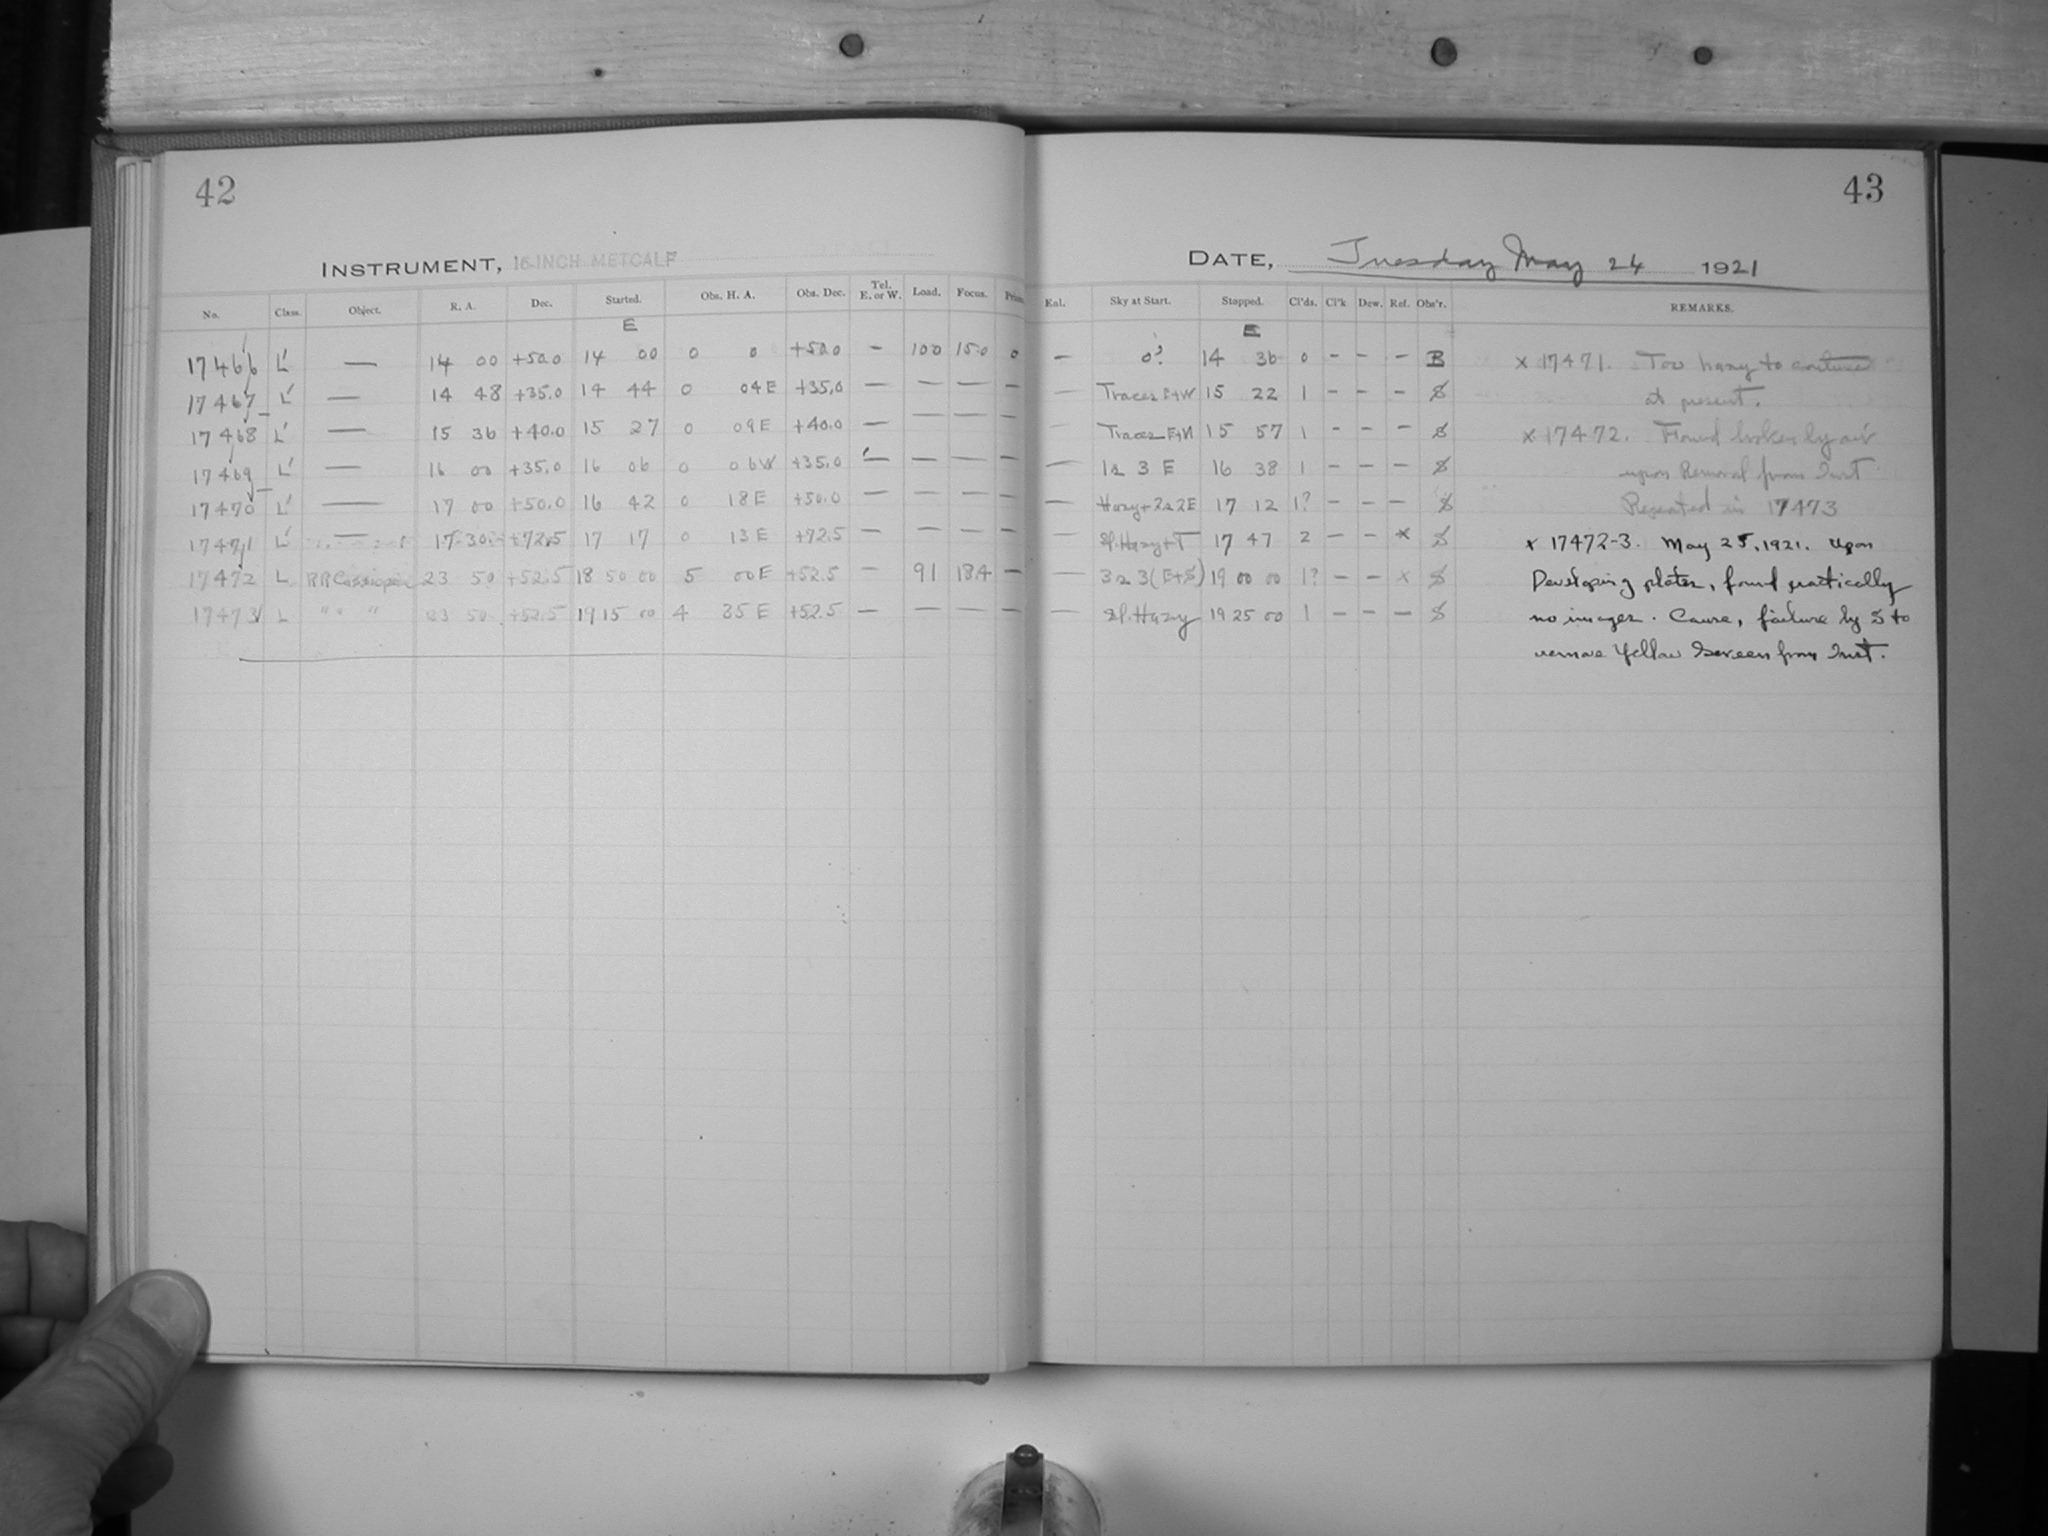 42
INSTRUMENT, 16-INCH METCALF
No. Class. Object. R. A. Dec. Started. Obs. H. A. Obs. Dec. Tel. E. or W. Load. Focus. Prism
E
17466 L' — 14 00 +50.0 14 00 0 0 +50.0 — 100 15.0 0
17467 L' — 14 48 +35.0 14 44 0 04E +35.0 — — — —
17468 L' — 15 36 +40.0 15 27 0 09E +40.0 — — — —
17469 L' — 16 00 +35.0 16 06 0 06W +35.0 — — — —
17470 L' — 17 00 +50.0 16 42 0 18E +50.0 — — — —
17471 L' — 17 30 +72.5 17 17 0 13E +72.5 — — — —
17472 L RR Cassiopeiae 23 50 +52.5 18 50 00 5 00E +52.5 — 91 18.4 —
17473 L " " " 23 50 +52.5 19 15 00 4 35E +52.5 — — — —
43
DATE, Tuesday May 24 1921
Enl. Sky at Start. Stopped. Cl'ds. Cl'k Dew. Ref. Obs'r. REMARKS.
E
— 0? 14 36 0 — — — B
— Traces E+W 15 22 1 — — — S
— Traces E+N 15 57 1 — — — S
— 1a 3 E 16 38 1 — — — S
— Hazy+2a2E 17 12 1? — — — S
— Sl. Hazy+T 17 47 2 — — x S
— 3a3(E+S) 19 00 00 1? — — x S
— Sl. Hazy 19 25 00 1 — — — S
x 17471. Too hazy to continue
at present.
x 17472. Found broken by air
upon Removal from Inst
Repeated in 17473
x 17472-3. May 25, 1921. Upon
Developing plates, found practically
no images. Cause, failure by S to
remove Yellow Screen from Inst.